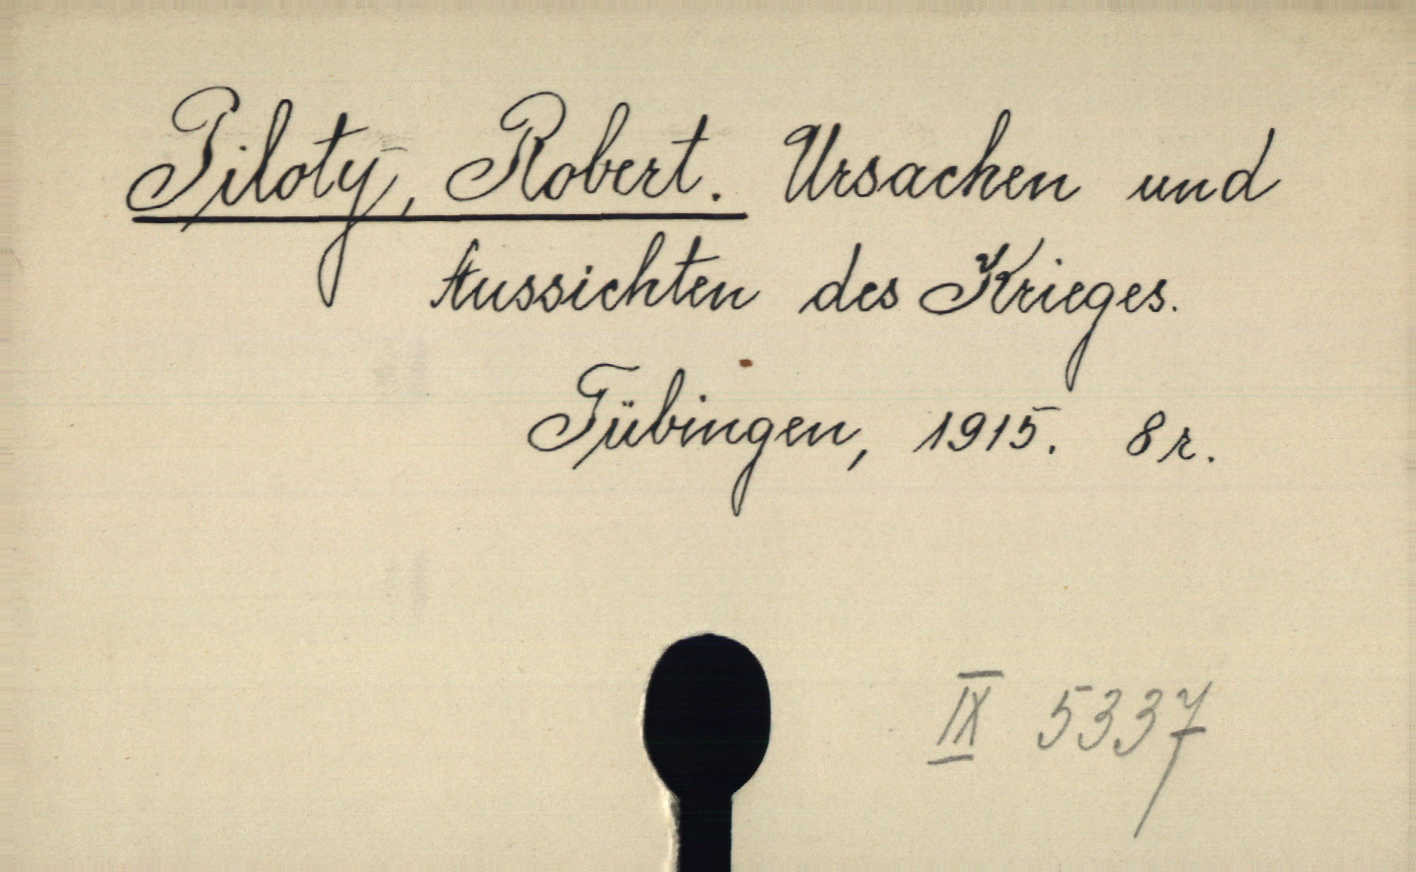 Piloty, Robert. Ursachen und
Aussichten des Krieges.
Tübingen, 1915. 8 r.
IX 5337